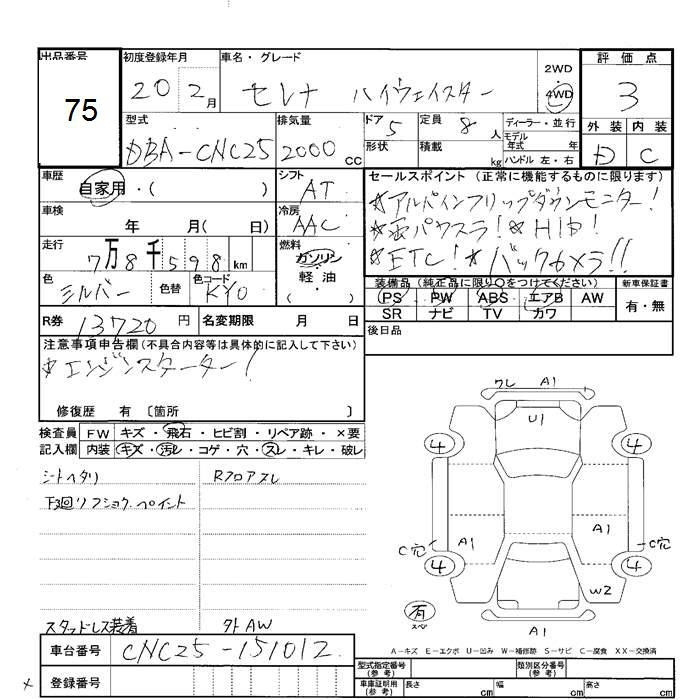 出品番号 初度登録年月 車名・グレード 評価点
75
20 2月 セレナ ハイウェイスター 2WD 4WD 3
型式 排気量 ドア 定員 ディーラー・並行 外装 内装
DBA-CNC25 2000cc 5 8人 モデル年式 年 D C
形状 積載 kg ハンドル 左・右
車歴 シフト セールスポイント(正常に機能するものに限ります)
自家用・( ) AT ☆アルパインフリップダウンモニター!
車検 冷房
年 月( 日) AAC パワスラ! ☆HID!
走行 燃料
7万8千598km ガソリン ☆ETC!☆バックカメラ!!
軽・油
( )
色 色替 色コード 装備品(純正品に限り○をつけてください) 新車保証書
シルバー KY0 PS PW ABS エアB AW 有・無
SR ナビ TV カワ
R券 13720円 名変期限 月 日 後日品
注意事項申告欄(不具合内容等は具体的に記入して下さい)
☆エンジンスターター!
修復歴 有 〔箇所 〕
検査員 FW キズ・飛石・ヒビ割・リペア跡・×要
記入欄 内装 キズ・汚レ・コゲ・穴・スレ・キレ・破レ
シートヘタリ Rフロアスレ
下3回リフショウ.ペイント
ワレ A1
U1
4 4
A1 A1
C穴 C穴
4 4
W2
有
スペア
A1
スタッドレス装着 外AW
A-キズ E-エクボ U-凹み W-補修跡 S-サビ C-腐食 XX-交換済
車台番号 CNC25-151012
登録番号
型式指定番号(参考) 類別区分番号(参考)
車庫証明用(参考) 長さ cm 幅 cm 高さ cm